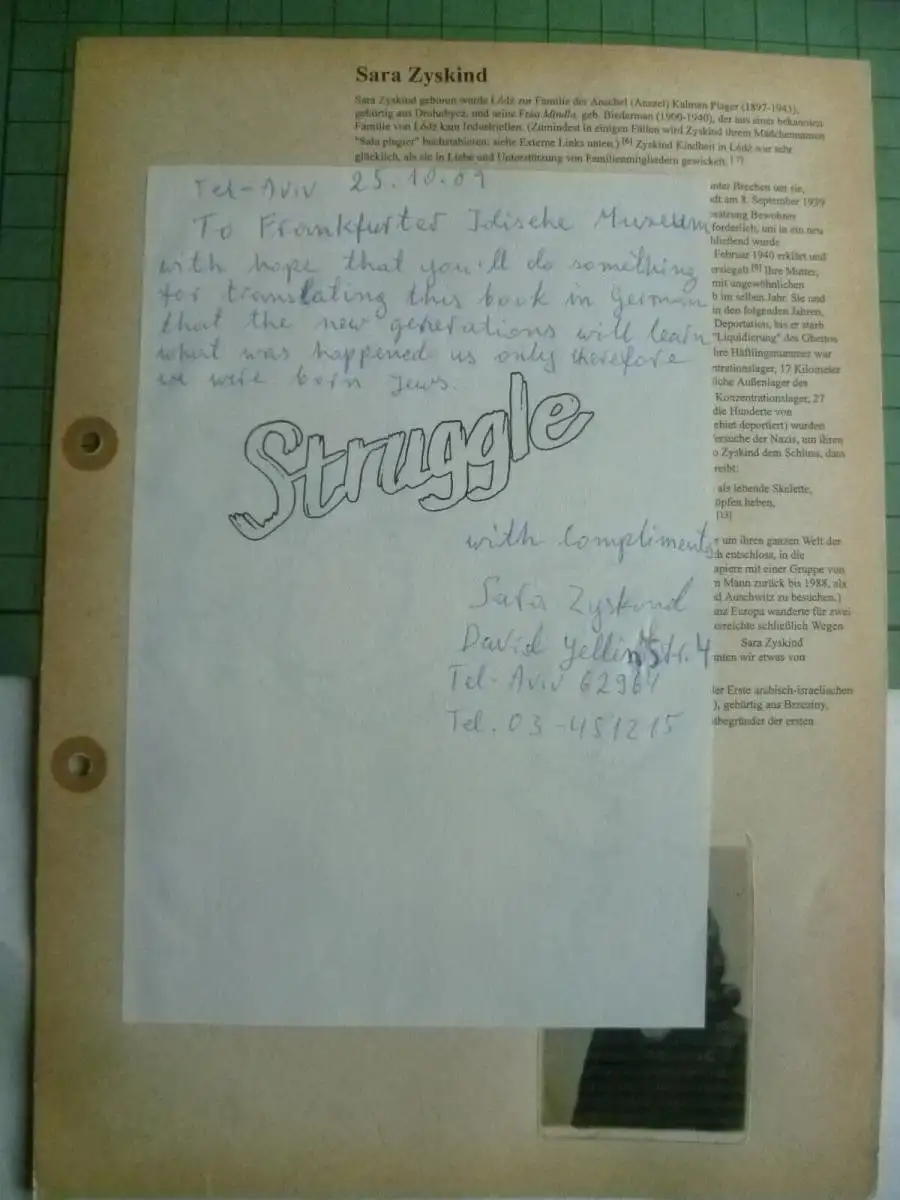 Sara Zyskind
Sara Zyskind geboren wurde Łódź zur Familie der Anschel (Anszel) Kalman Plager (1897-1943),
gebürtig aus Drohobycz, und seine Frau Mindla, geb. Biederman (1900-1940), der aus einer bekannten
Familie von Łódź kam Industriellen. (Zumindest in einigen Fällen wird Zyskind ihrem Mädchennamen
"Sala plagier" buchstabieren: siehe Externe Links unten.) [6] Zyskind Kindheit in Łódź war sehr
glücklich, als sie in Liebe und Unterstützung von Familienmitgliedern gewickelt. [7]
Tel-Aviv 25.10.89
To Frankfurter Idische Museum
with hope that you'll do something
for translating this book in German
that the new generations will learn
what was happened us only therefore
we were born Jews.
Struggle
with compliments
Sara Zyskind
David Yellin Str. 4
Tel-Aviv 62964
Tel. 03-451215
unter Brechen um sie,
dt am 8. September 1939
Bewohner
forderlich, um in ein neu
hließend wurde
Februar 1940 erklärt und
[9] Ihre Mutter,
mit ungewöhnlichen
b im selben Jahr. Sie und
in den folgenden Jahren,
Deportation, bis er starb
"Liquidierung" des Ghettos
hre Häftlingsnummer war
ntrationslager, 17 Kilometer
liche Außenlager des
Konzentrationslager, 27
die Hunderte von
ebiet deportiert) wurden
ersuche der Nazis, um ihren
o Zyskind dem Schluss, dass
reibt:
als lebende Skelette,
öpfen heben,
[13]
r um ihren ganzen Welt der
h entschloss, in die
apiere mit einer Gruppe von
n Mann zurück bis 1988, als
d Auschwitz zu besuchen.)
anz Europa wanderte für zwei
erreichte schließlich Wegen
Sara Zyskind
nnten wir etwas von
der Erste arabisch-israelischen
), gebürtig aus Brzeziny,
tbegründer der ersten